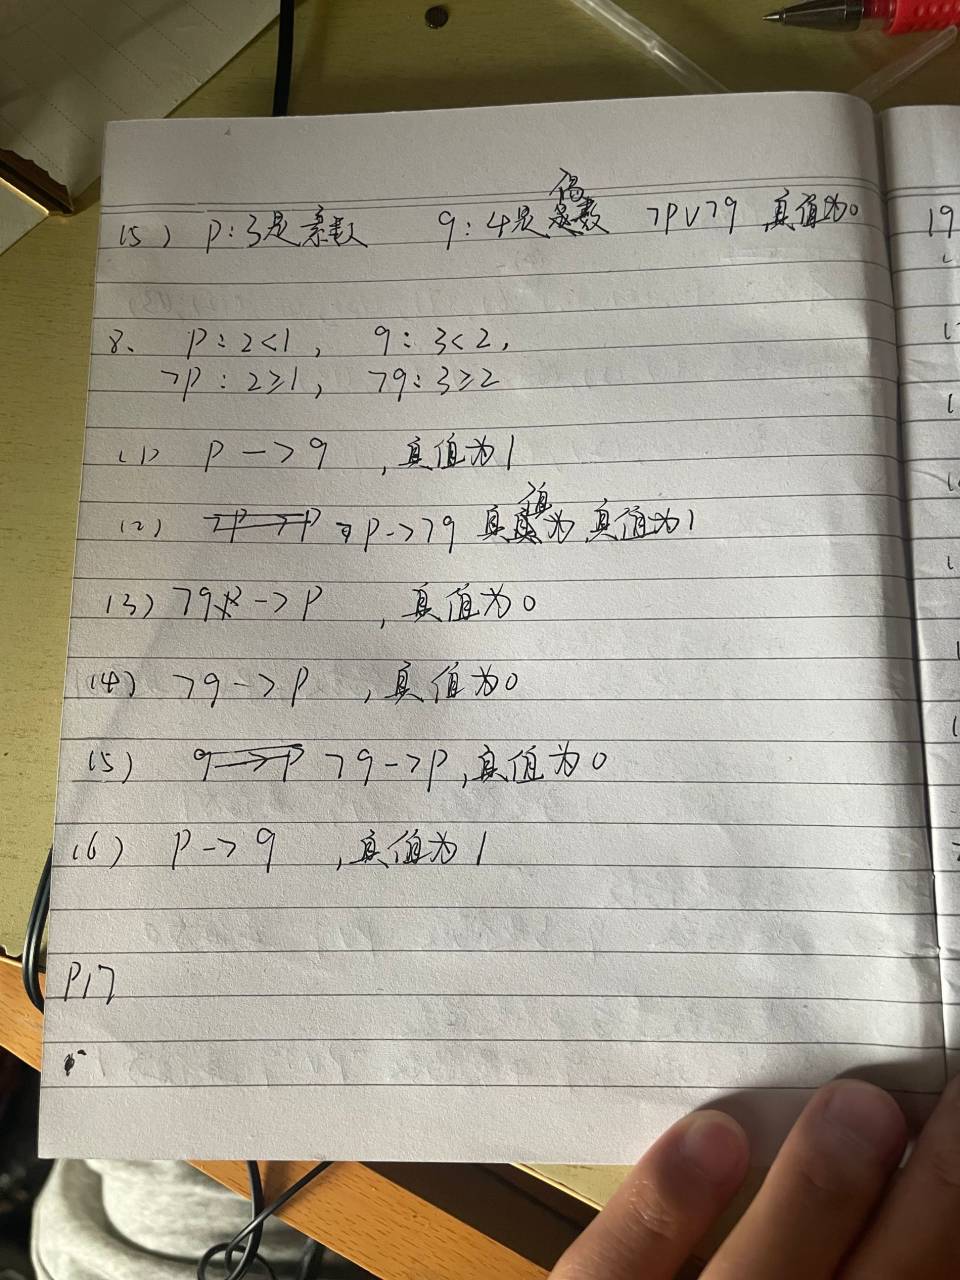 (5) p:3是素数 q:4是偶数 ┐p∨┐q 真值为0
8、 p:2<1, q:3<2,
┐p:2≥1, ┐q:3≥2
(1) p->q ,真值为1
(2) ┐p->┐q 真值为1
(3) ┐q->p ,真值为0
(4) ┐q->p ,真值为0
(5) ┐q->p,真值为0
(6) p->q ,真值为1
P17
19